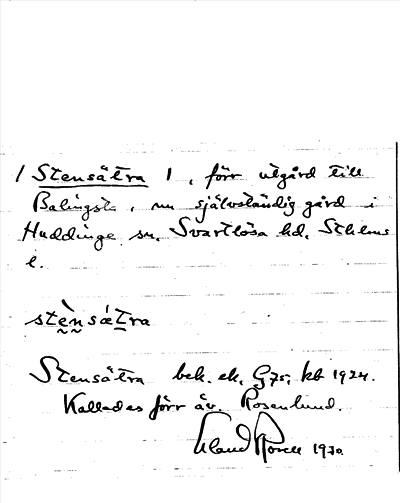 / Stensätra 1, förr utgård till
Balingsta, nu självständig gård i
Huddinge sn. Svartlösa hd. Sthlms
l.
stèn sátra
Stensätra bek. ek. G75; kb 1924.
Kallades förr äv. Rosenlund.
1930